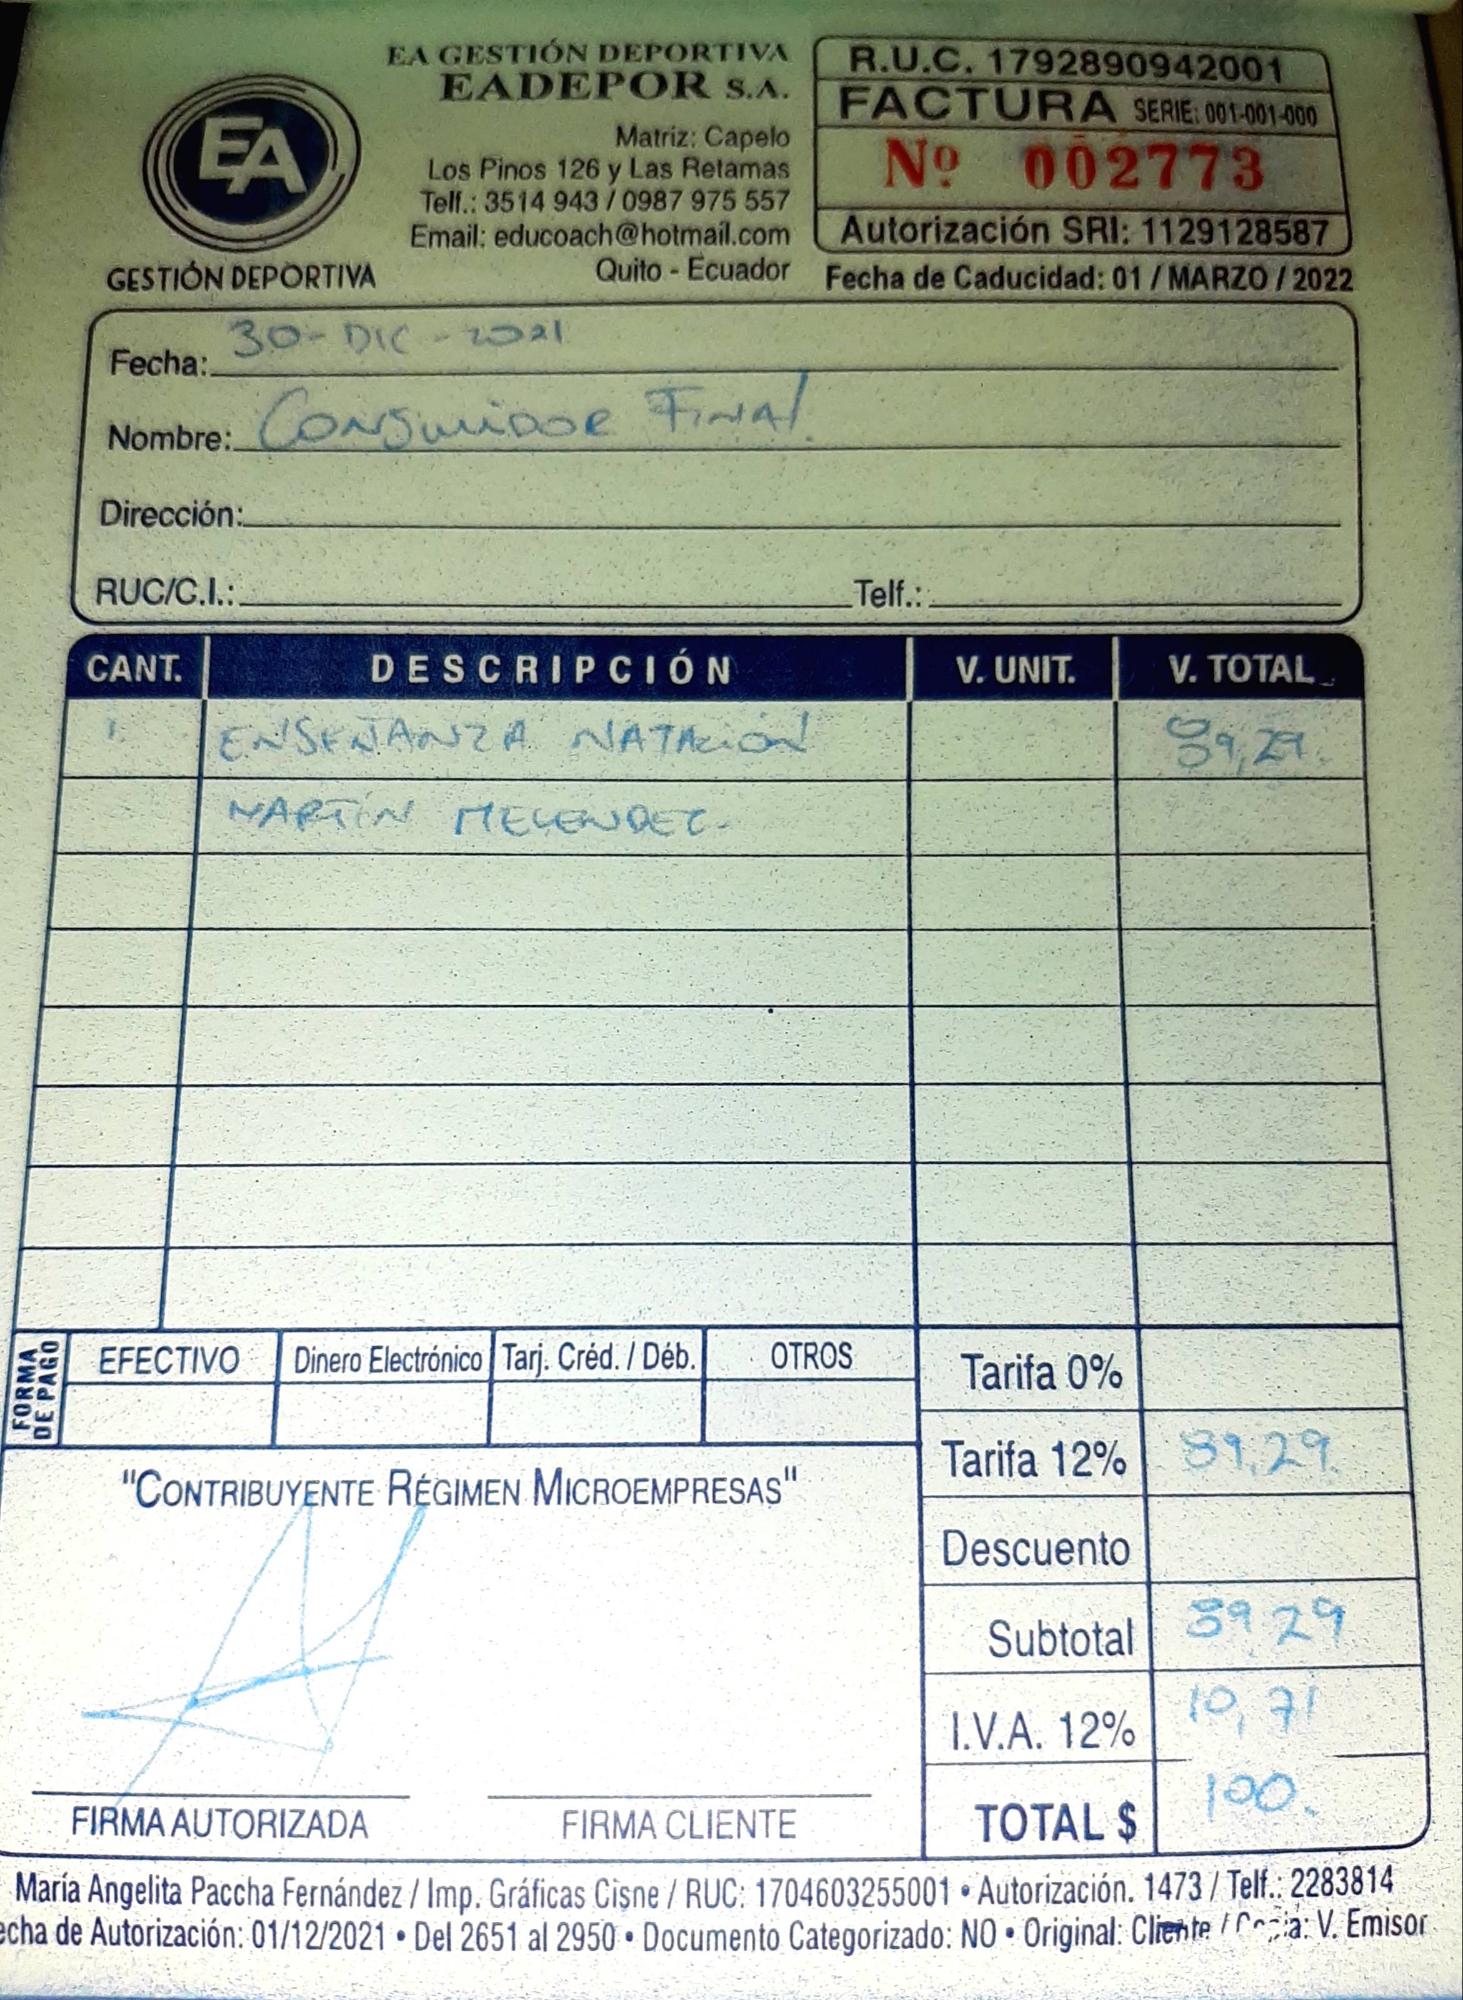 EA GESTIÓN DEPORTIVA
EADEPOR S.A.
EA
GESTIÓN DEPORTIVA
Matriz: Capelo
Los Pinos 126 y Las Retamas
Telf.: 3514 943 / 0987 975 557
Email: educoach@hotmail.com
Quito - Ecuador
R.U.C. 1792890942001
FACTURA SERIE: 001-001-000
Nº 002773
Autorización SRI: 1129128587
Fecha de Caducidad: 01 / MARZO / 2022
Fecha: 30-DIC-2021
Nombre: CONSUMIDOR FINAL
Dirección:
RUC/C.I.: Telf.:
CANT. DESCRIPCIÓN V. UNIT. V. TOTAL
1. ENSEÑANZA NATACIÓN 89,29.
MARTIN MELENDEZ.
FORMA DE PAGO
EFECTIVO Dinero Electrónico Tarj. Créd. / Déb. OTROS
Tarifa 0%
Tarifa 12% 89,29.
Descuento
Subtotal 89.29
I.V.A. 12% 10,71
TOTAL $ 100.
"CONTRIBUYENTE RÉGIMEN MICROEMPRESAS"
FIRMA AUTORIZADA FIRMA CLIENTE
María Angelita Paccha Fernández / Imp. Gráficas Cisne / RUC: 1704603255001 • Autorización. 1473 / Telf.: 2283814
echa de Autorización: 01/12/2021 • Del 2651 al 2950 • Documento Categorizado: NO • Original: Cliente / Copia: V. Emisor